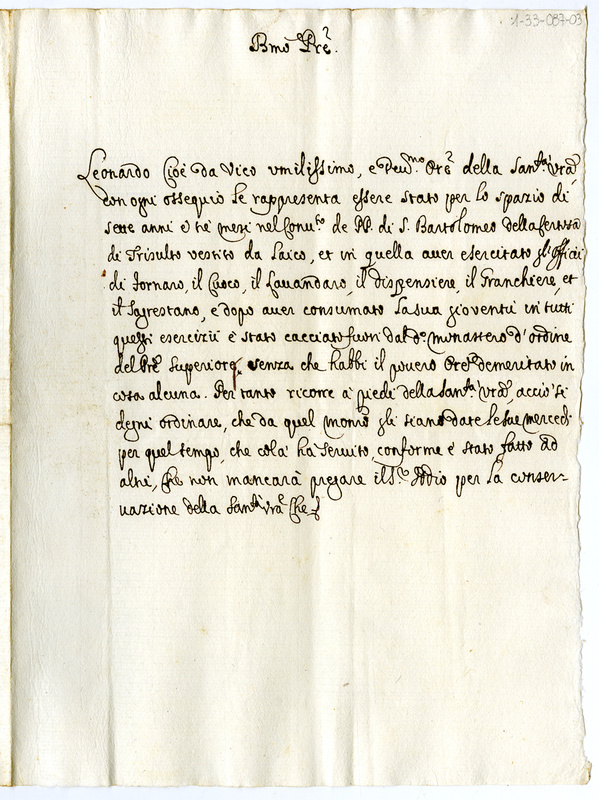 1-33-087-03
Bmo Pre.
Leonardo Cioè da Vico umilissimo, e Deu.mo Ore della San.tà Vra
con ogni ossequio le rappresenta essere stato per lo spazio di
sette anni e tre mesi nel Conu.to de PP. di S. Bartolomeo della Certosa
di Trisulto vestito da Laico, et in quella auer esercitato gl'Officii
di Fornaro, il Cuoco, il Lauandaro, il dispensiere, il Granchiere, et
il Sagrestano, e dopo auer consumato la sua gioventù in tutti
questi esercizii è stato cacciato fuori dal do monastero d'ordine
del Pre Superiore, senza che habbi il pouero Ore demeritato in
cosa alcuna. Per tanto ricorre a piedi della San.tà Vra, acciò si
degni ordinare, che da quel Monro gli siano date le sue mercedi
per quel tempo, che colà hà seruito, conforme è stato fatto ad
altri, Che non mancarà pregare il S. Iddio per la conser-
uazione della San.tà Vra Che